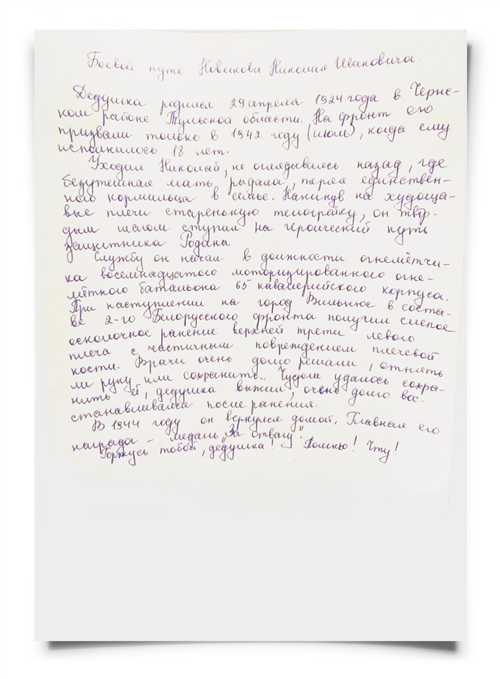 Боевой путь Новикова Николая Ивановича
Дедушка родился 29 апреля 1924 года в Черне-
ком районе Тульской области. На фронт его
призвали только в 1942 году (июль), когда ему
исполнилось 18 лет.
Уходил Николай, не оглядываясь назад, где
безутешная мать рыдала, теряя единствен-
ного кормильца в семье. Накинув на худоща-
вые плечи старенькую телогрейку, он твёр-
дым шагом ступил на героический путь
защитника Родины
Службу он начал в должности огнемётчи-
ка восемнадцатого моторизированного огне-
мётного батальона 65 кавалерийского корпуса.
При наступлении на город Вильнюс в соста-
ве 2-го Белорусского фронта получил слепое
осколочное ранение верхней трети левого
плеча с частичным повреждением плечевой
кости. Врачи очень долго решали, отнять
ли руку или сохранить. Чудом удалось сохра-
нить её, дедушка выжил, очень долго вос-
станавливался после ранения.
В 1944 году он вернулся домой. Главная его
награда - медаль "За отвагу".
Горжусь тобой, дедушка! Помню! Чту!